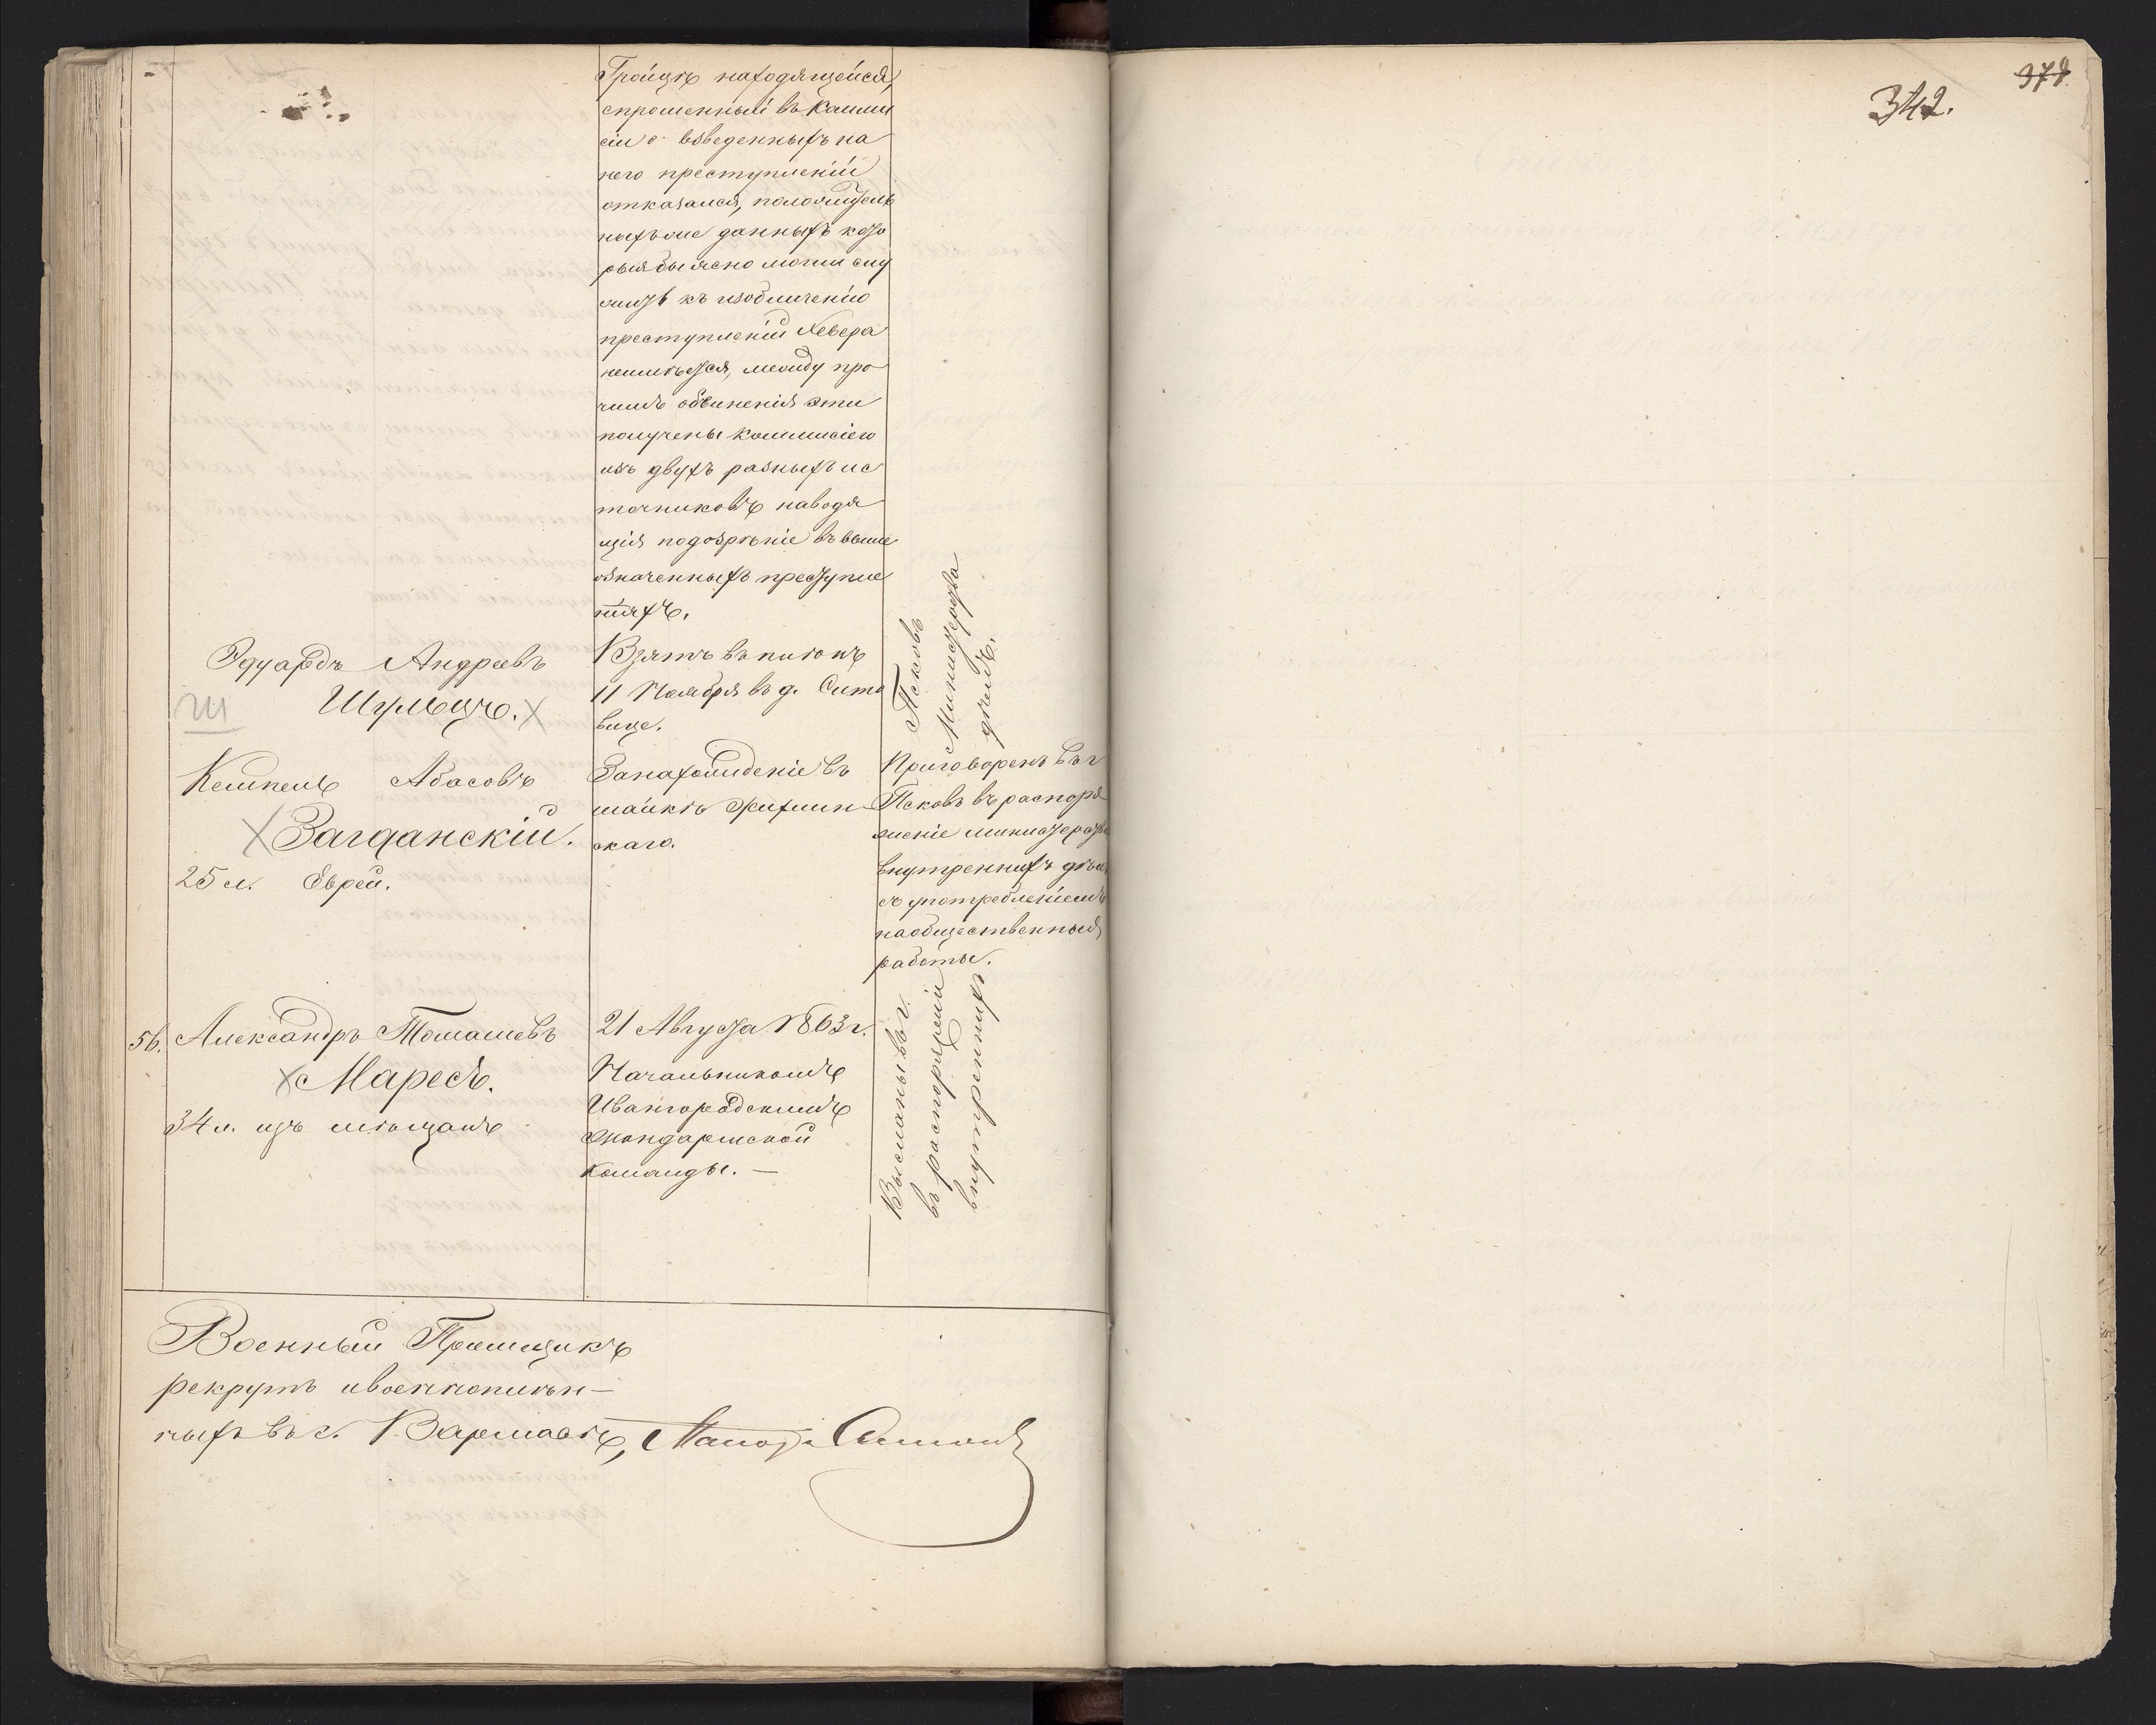 Тройцѣ находящейся,
спрошенный въ Комми
сіи о взведенныхъ на
него преступленій
отказался, положитель
ныхъ же данныхъ кото
рыя бы ясно могли слу
жить къ изобличенію
преступленій Хевера
неимѣется, между про
чимъ обвиненія эти
получены Коммисіею
изъ двухъ разныхъ ис
точниковъ наводя
щія подозрѣніе въ выше
означенныхъ преступле
ніяхъ.
Эдуардъ Андреевъ
Шульцъ. X
Ш
Взятъ въ плѣнъ
11 Ноября въ д. Сито
вице.
Псковъ
Министерства
дѣлъ.
Кемпель Абасовъ
X Загданскій.
25 л. Еврей.
Занахожденіе въ
шайкѣ Жихлин-
скаго.
Приговоренъ въ г
Псковъ въ распоря
женіе министерства
внутреннихъ дѣлъ
съ употребленіемъ
на общественныя
работы.
56. Александръ Томашевъ
X Маресъ.
34 л. изъ мѣщанъ
21 Августа 1863 г.
Начальникомъ
Ивангородскимъ
Жандармской
команды. —
Высланы въ г.
въ распоряженіи
внутреннихъ
Военный Пріемщикъ
рекрутъ и военноплѣн-
ныхъ въ г. Варшавѣ,
342.
378.